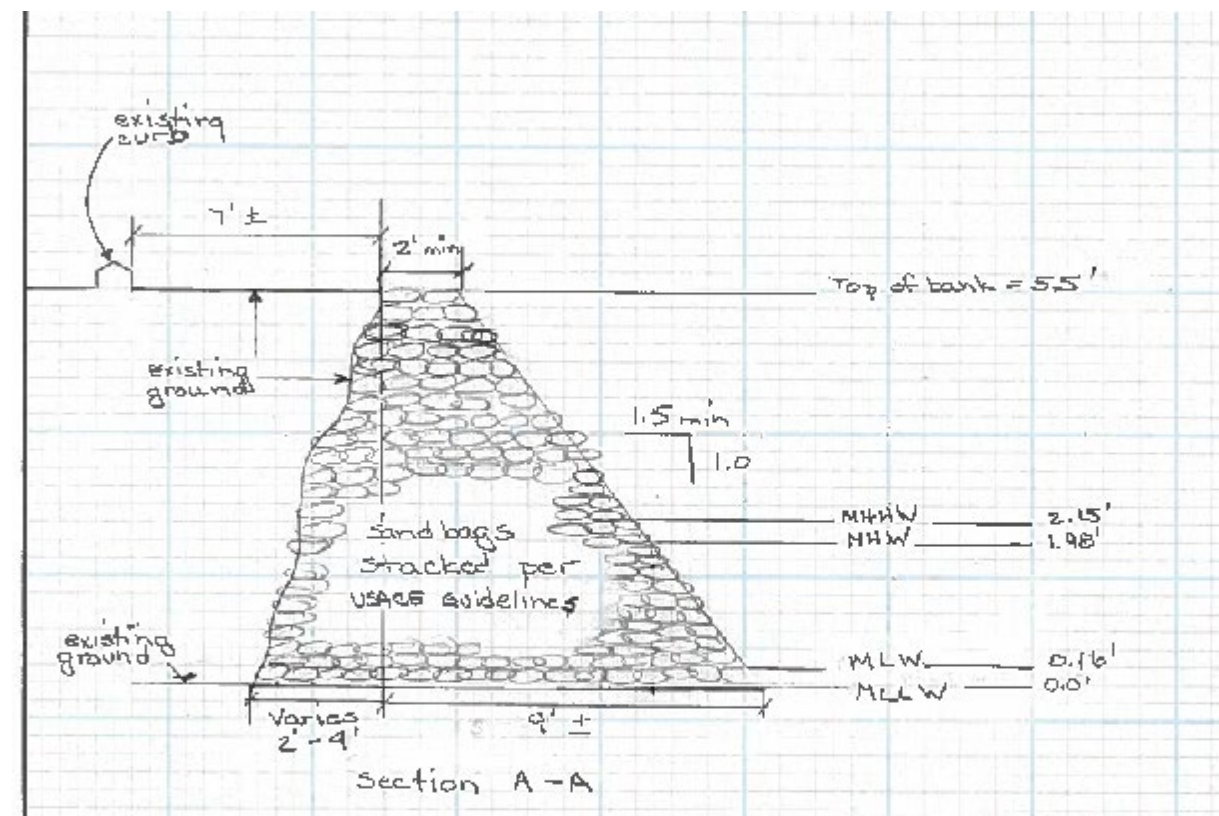 existing
curb
7' ±
2' min
Top of bank = 5.5'
existing
ground
1.5 min
1.0
MHHW 2.15'
MHW 1.98'
Sandbags
stacked per
USACE Guidelines
existing
ground
MLW 0.16'
MLLW 0.0'
Varies
2' - 4'
9' ±
Section A-A